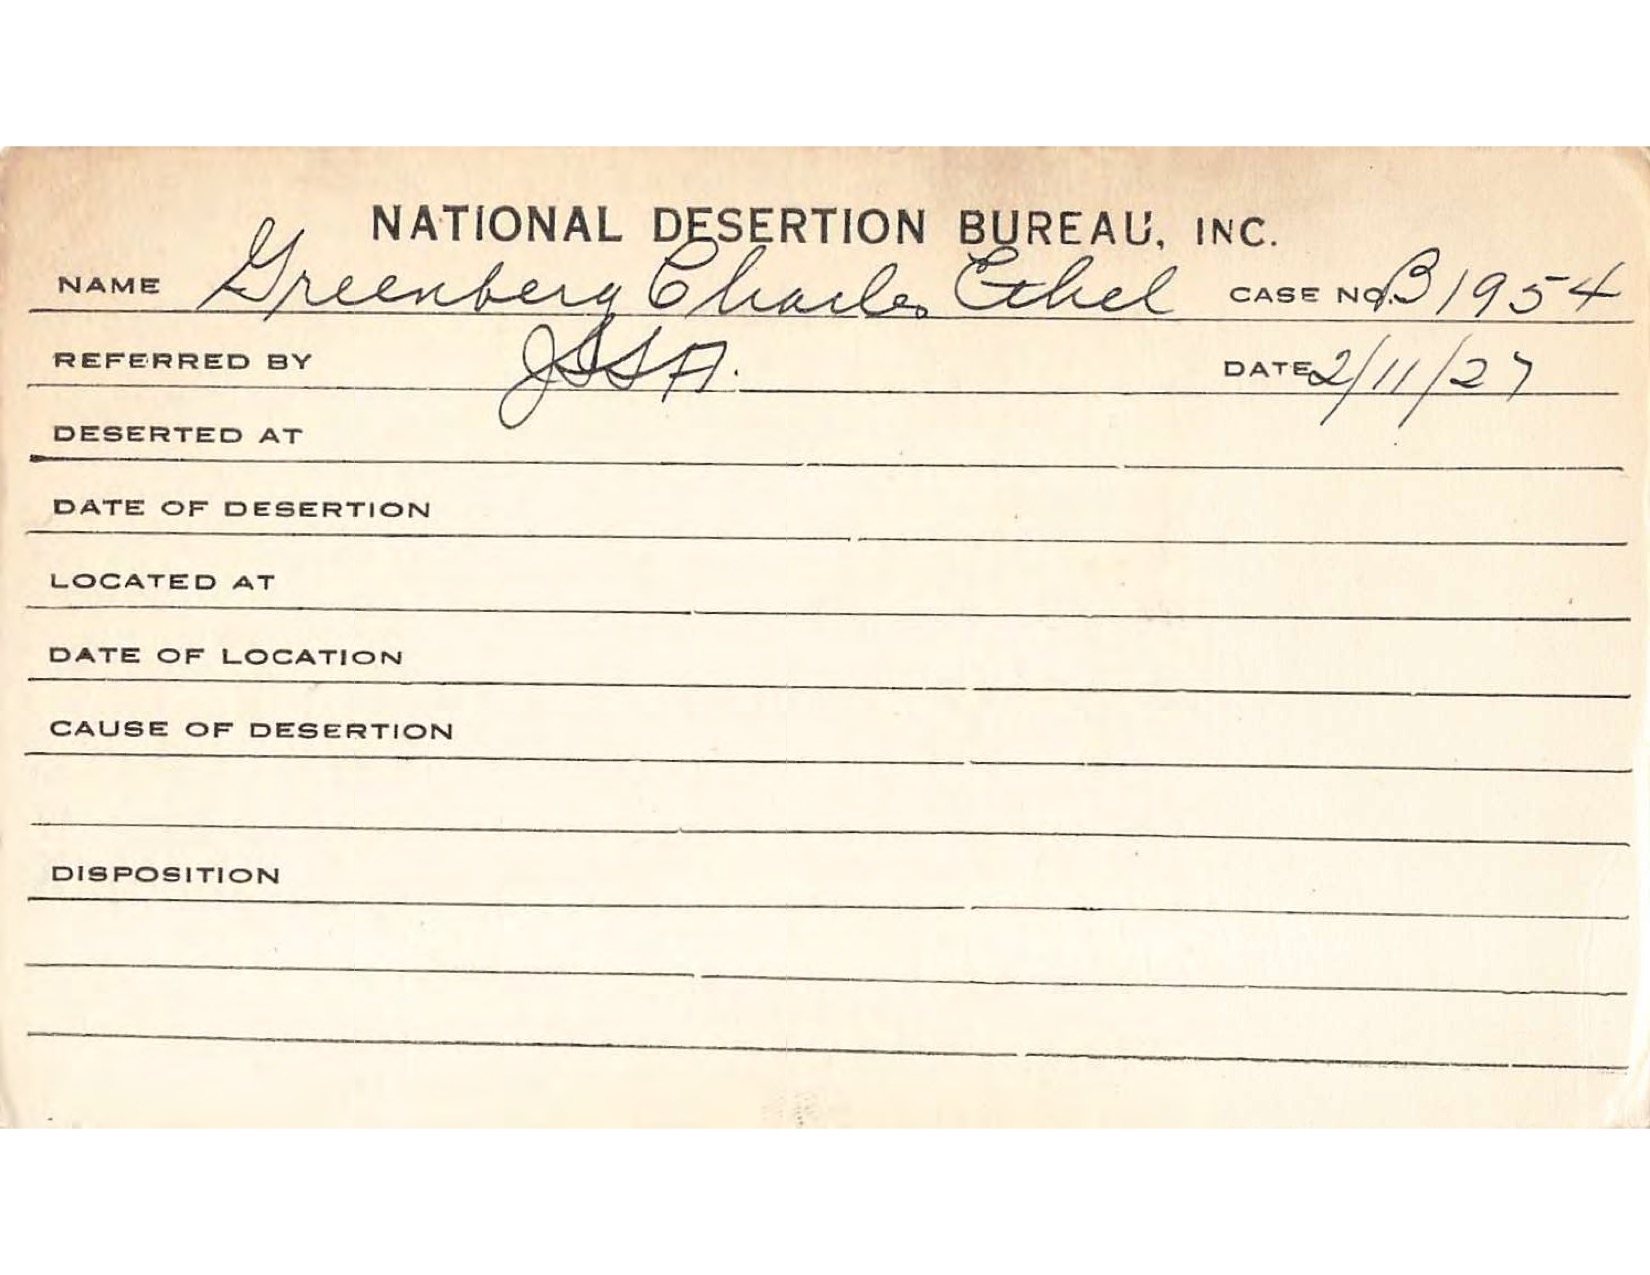 NATIONAL DESERTION BUREAU, INC.
NAME Greenberg Charles Ethel CASE NO. B1954
REFERRED BY JSSA. DATE 2/11/27
DESERTED AT
DATE OF DESERTION
LOCATED AT
DATE OF LOCATION
CAUSE OF DESERTION
DISPOSITION